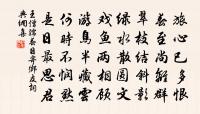 旅心已多恨
春至尚離群
翠枝結斜影
綠水散圓文
戲魚兩相顧
游鳥半藏雲
何時不憫默
是日最思君
王僧孺春日寄鄉友詞
典網集